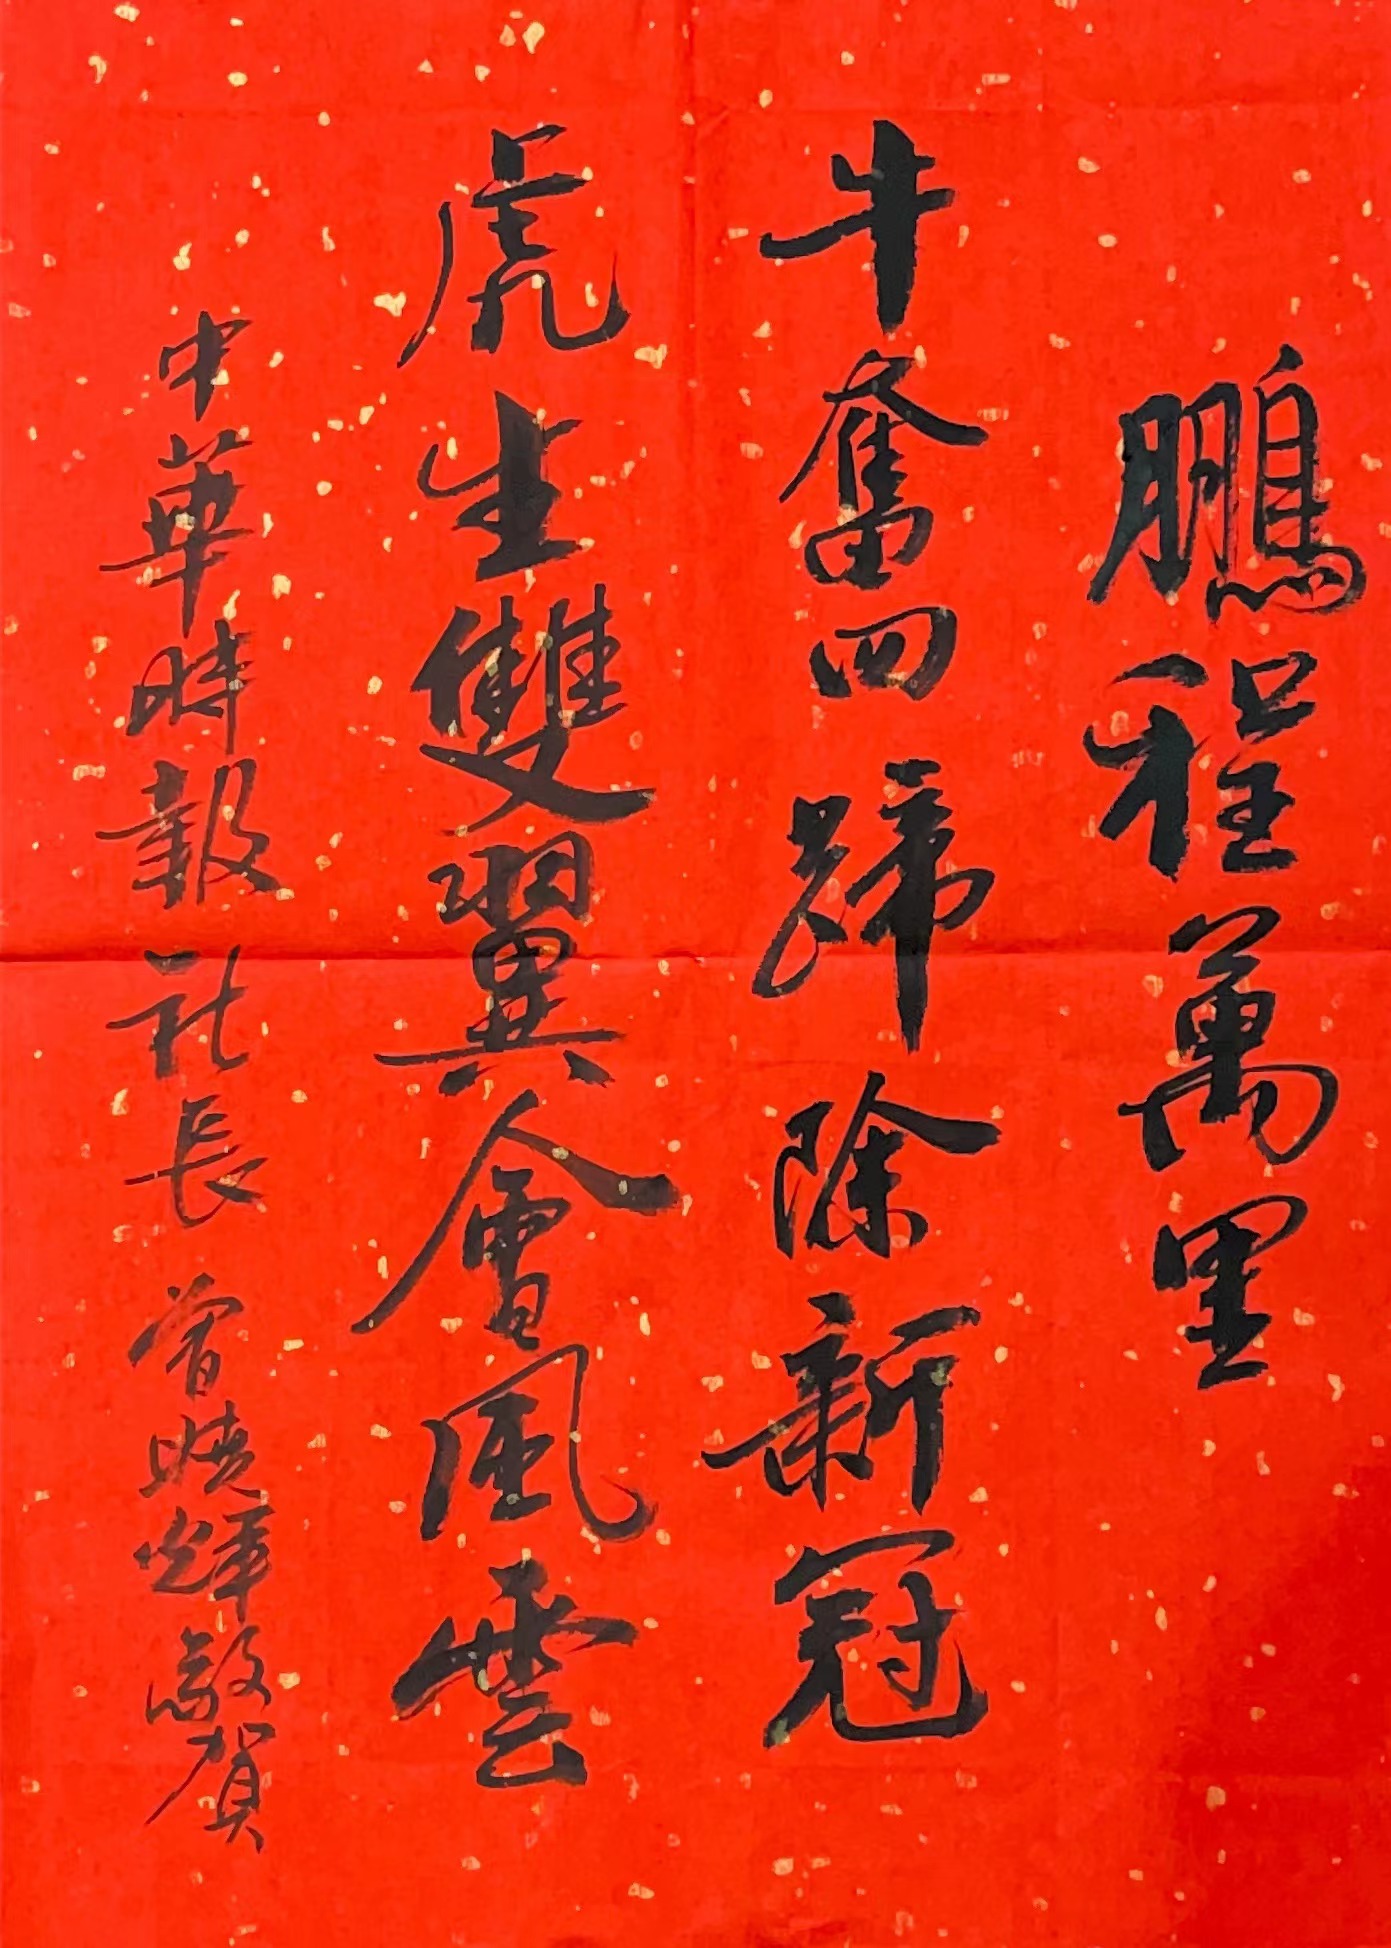 鵬程萬里
牛奮四蹄除新冠
虎生雙翼會風雲
中華時報社長曾曉輝敬賀